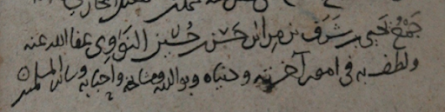 جمع يحيى بن شرف بن مرى بن حسن بن حسين النووي عفا الله عنه
ولطف به في امور آخرته ودنياه وبوالديه ومشايخه وأحبابه وسائر المسلمين